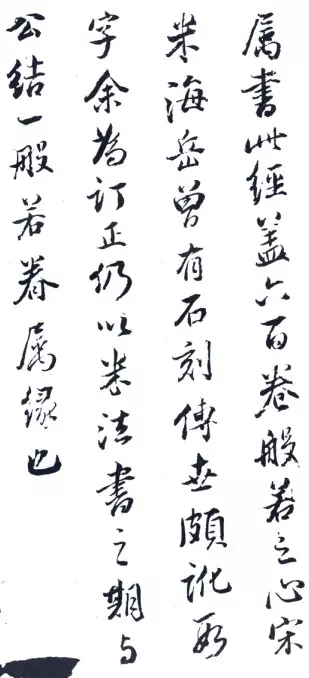 属書此經蓋六百卷般若之心宋
米海岳曾有石刻傳世頗訛數
字余為訂正仍以米法書之期与
公結一般若眷属縁也